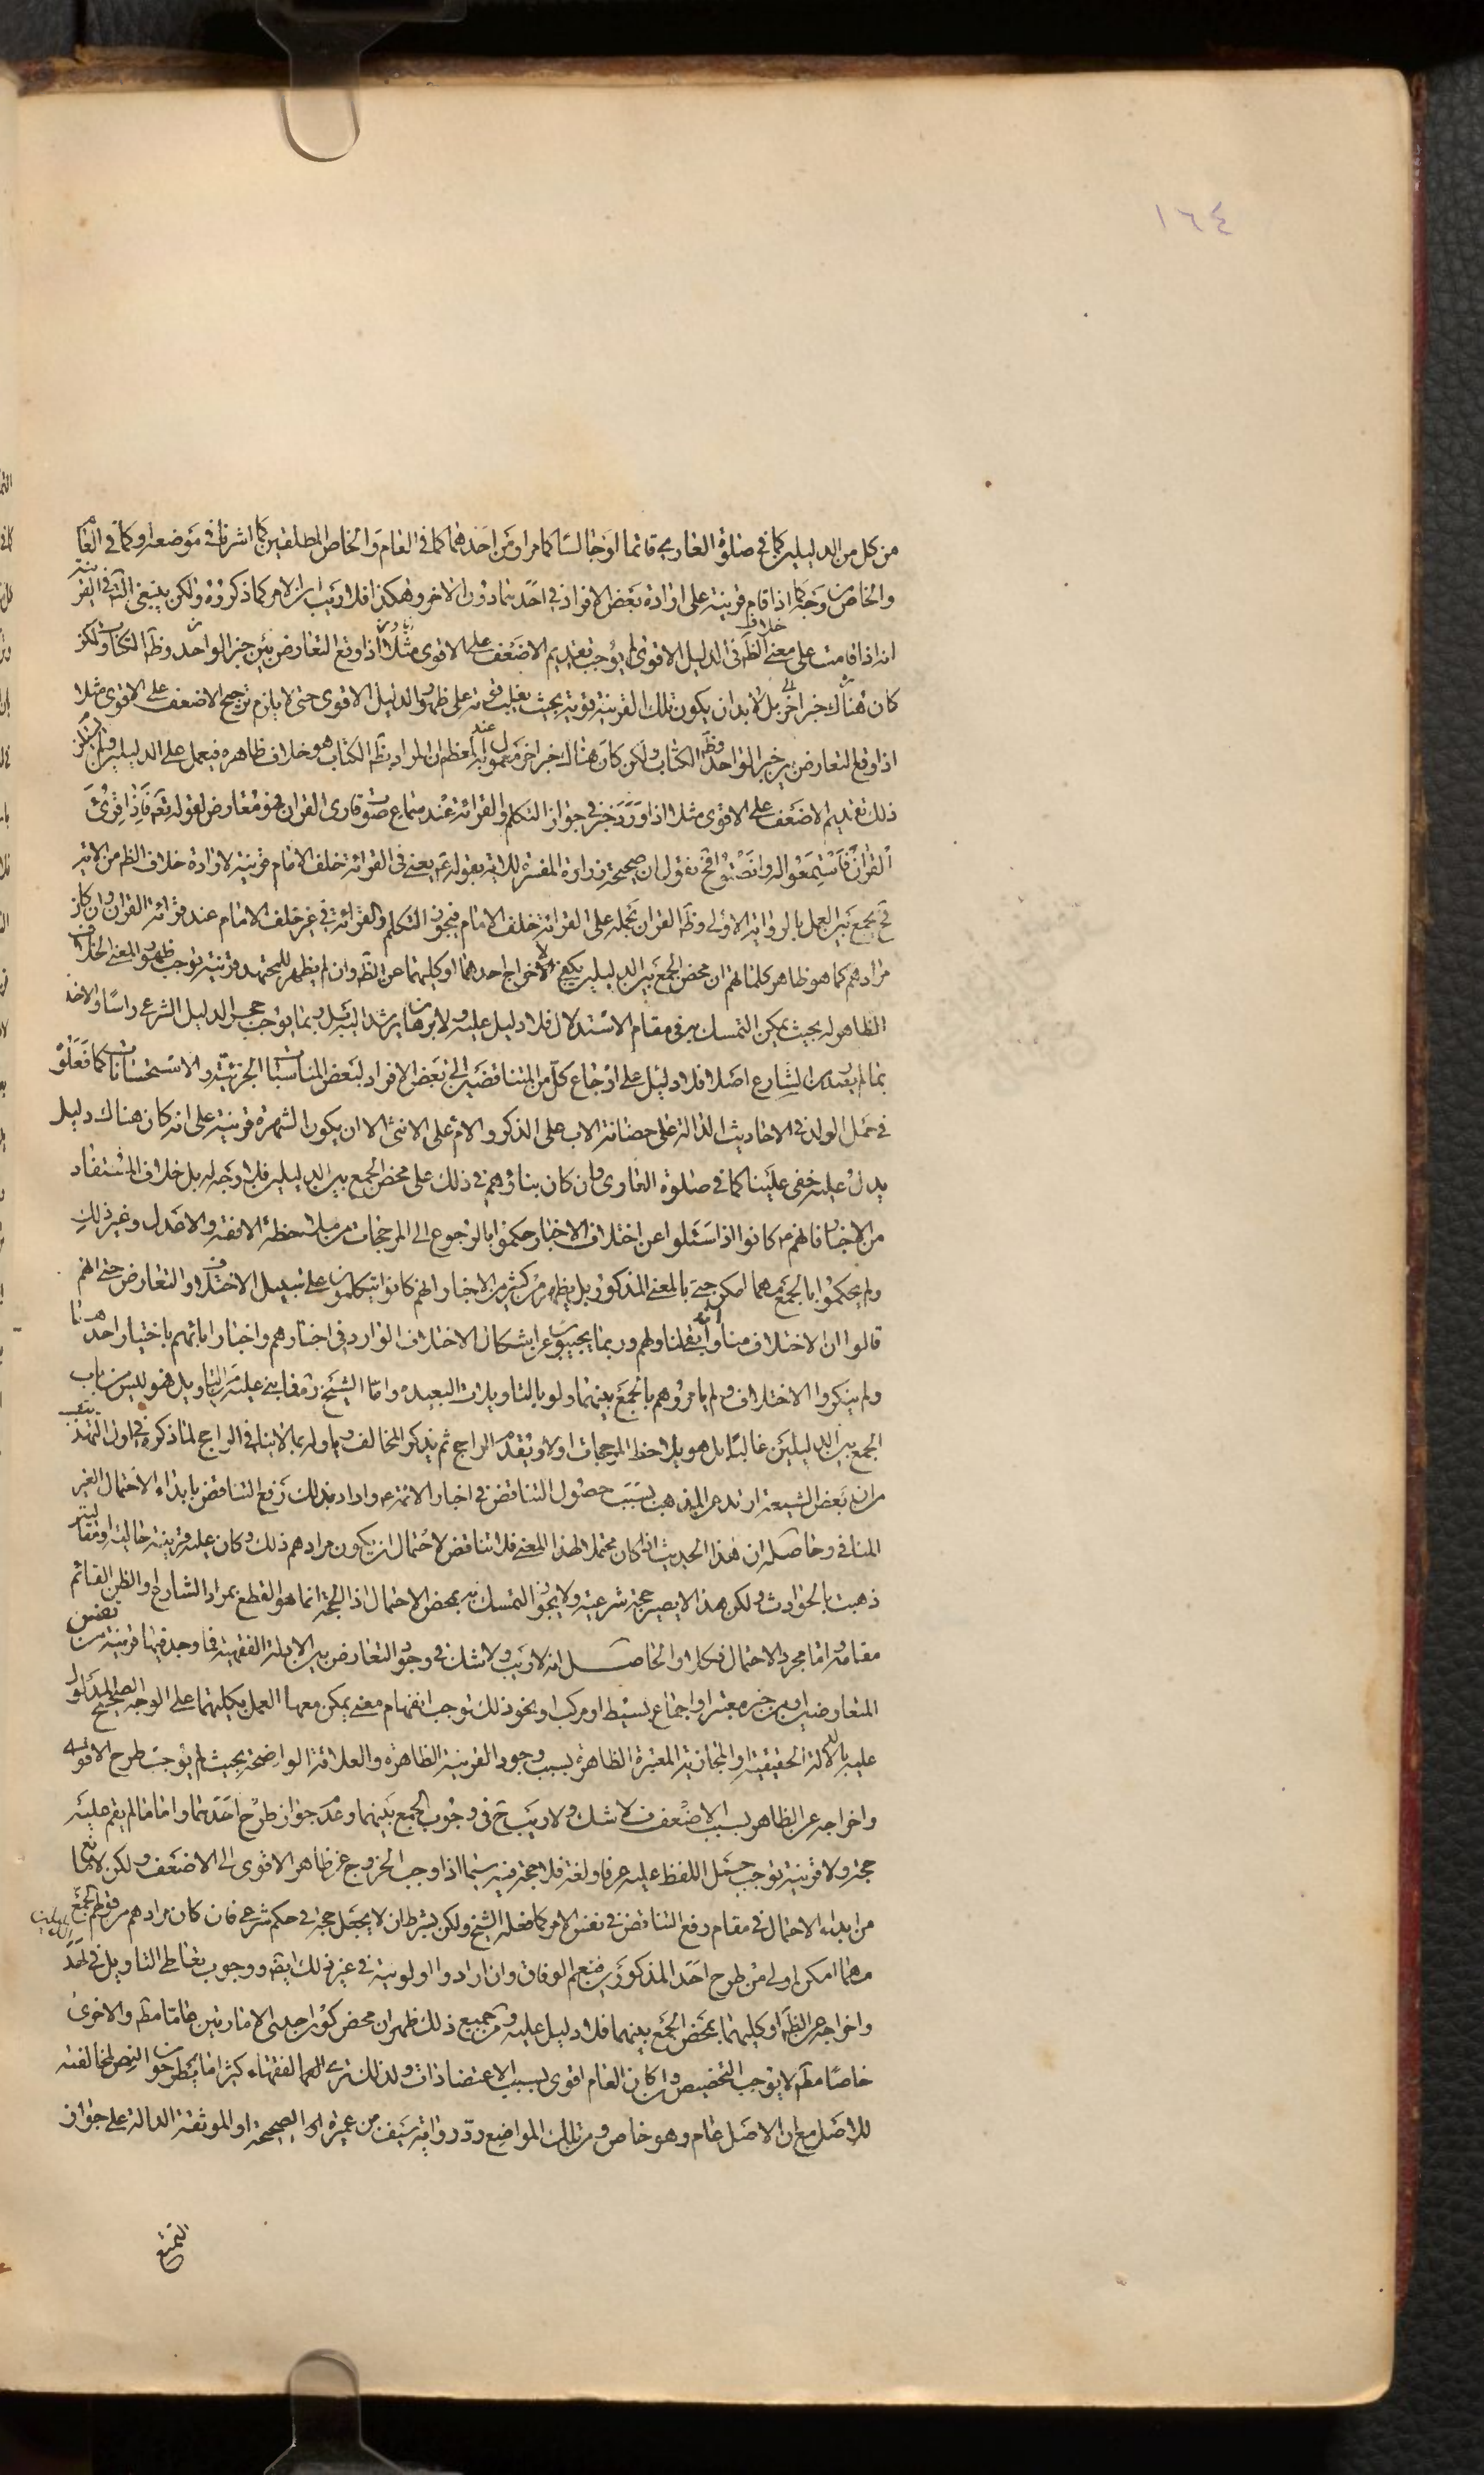 ١٦٤
من كل من الدليلين كما في صلوة العاري قائما او جالسا كما مر او من احدهما كما في العام والخاص المطلقين كما اشرنا في موضعه او كما في العام
والخاص من وجه كما اذا قام قرينة على ارادة بعض الافراد في احدهما دون الاخر وهكذا فلا ريب ان الامر كما ذكروه ولكن ينبغي التأمل في القرينة
انه اذا قامت على معنى خلاف الظ في الدليل الاقوى لم يوجب تقديم الاضعف على الاقوى مثلا اذا وقع التعارض بين خبر الواحد وظ الكتاب ولكن
كان هناك خبر اخر بل لابد ان يكون تلك القرينة قوية بحيث يغلب قوته على ظهور الدليل الاقوى حتى لا يلزم ترجيح الاضعف على الاقوى مثلا
اذا وقع التعارض بين خبر الواحد وظ الكتاب ولكن كان هناك خبر اخر معمول به عند المعظم ان المراد بظ الكتاب هو خلاف ظاهره فيعمل على الدليلين ولم يستلزم
ذلك تقديم الاضعف على الاقوى مثلا اذا ورد خبر في جواز التكلم والقرائة عند سماع صوت قاري القران فهو معارض لقوله تعه فاذا قرئ
القران فاستمعوا له وانصتوا فح نقول ان صحيحة زرارة المفسرة للاية بقوله ع يعني في القرائة خلف الامام قرينة لارادة خلاف الظ من الاية
فح يجمع بين العمل بالرواية الاولى وظ القران بحمله على القرائة خلف الامام فيجوز التكلم والقرائة في غير خلف الامام عند قرائة القران وان كان
مرادهم كما هو ظاهر كلماتهم ان محض الجمع بين الدليلين يكفي لاخراج احدهما او كليهما عن الظ وان لم يظهر للمجتهد قرينة توجب ظهور المعنى الخلاف
الظاهر له بحيث يمكن التمسك به في مقام الاستدلال فلا دليل عليه ولا برهان يرشد اليه بل ربما يوجب هجر الدليل الشرعي راسا والاخذ
بما لم يفده الشارع اصلا فلا دليل على ارجاع كل من المتناقضين الى بعض الافراد لبعض المناسبات الجزئية والاستحسانات كما فعلوه
في حمل الولد في الاحاديث الدالة على حضانة الاب على الذكر والام على الانثى الا ان يكون الشهرة قرينة على انه كان هناك دليل
يدل عليه خفي علينا كما في صلوة العاري وان كان بناؤهم في ذلك على محض الجمع بين الدليلين فلا وجه له بل خلاف المستفاد
من الاخبار فانهم ع كانوا اذا سئلوا عن اختلاف الاخبار حكموا بالرجوع الى المرجحات من ملاحظة الافقه والاعدل وغير ذلك
ولم يحكموا بالجمع مهما امكن حتى بالمعنى المذكور بل يظهر من كثير من الاخبار انهم كانوا يتكلمون على سبيل الاختلاف والتعارض حتى انهم
قالوا ان الاختلاف منا وانه ابقى لنا ولهم وربما يجيبون عن اشكال الاختلاف الوارد في اخبارهم واخبار ابائهم باختيار احدهما
ولم ينكروا الاختلاف ولم يامروهم بالجمع بينهما ولو بالتاويلات البعيدة واما الشيخ ره فما بنى عليه من التاويل فهو ليس من باب
الجمع بين الدليلين غالبا بل هو يلاحظ المرجحات اولا ويقدم الراجح ثم يذكر المخالف وياوله بما لا ينافي الراجح لما ذكره في اول التهذيب
من ان بعض الشيعة ارتد عن المذهب بسبب حصول التناقض في اخبار الائمة ع واراد بذلك رفع التناقض بابداء الاحتمال الغير
المنافي وحاصله ان هذا الحديث اذا كان محتملا لهذا المعنى فلا تناقض لاحتمال ان يكون مرادهم ذلك وكان عليه قرينة حالية او مقالية
ذهبت بالحوادث ولكن هذا لا يصير حجة شرعية ولا يجوز التمسك به بمحض الاحتمال اذ الحجة انما هو القطع بمراد الشارع او الظن القائم
مقامه واما مجرد الاحتمال فكلا والحاصل انه لا ريب ولا شك في وجود التعارض بين الادلة الفقهية فما وجد فيها قرينة من نفس
المتعارضين او من خبر معتبر او اجماع بسيط او مركب او نحو ذلك توجب انفهام معنى يمكن معها العمل بكليهما على الوجه الصحيح المدلول
عليه بالدلالة الحقيقية او المجازية المعتبرة الظاهرة بسبب وجود القرينة الظاهرة والعلاقة الواضحة بحيث لم يوجب طرح الاقوى
واخراجه عن الظاهر بسبب الاضعف فلا شك ولا ريب ح في وجوب الجمع بينهما وعدم جواز طرح احدهما واما ما لم يقم عليه
حجة ولا قرينة توجب حمل اللفظ عليه عرفا ولغة فلا حجة فيه سيما اذا اوجب الخروج عن ظاهر الاقوى الى الاضعف ولكن لا مانع
من ابداء الاحتمال في مقام رفع التناقض في نفس الامر كما فعله الشيخ ولكن بشرط ان لا يجعل حجة في حكم شرعي فان كان مرادهم من قولهم الجمع
مهما امكن اولى من طرح احد المذكورين فنعم الوفاق وان ارادوا اولوية في غير ذلك ايضه ووجوب تعاطي التاويل في احد الدليلين
واخراجه عن الظ او كليهما بمحض الجمع بينهما فلا دليل عليه ومن جميع ذلك ظهر ان محض كون احدى الامارتين عاما مطه والاخرى
خاصا مطه لا يوجب التخصيص وان كان العام اقوى بسبب الاعتضادات ولذلك ترى الفقهاء كثيرا ما يطرحون النص لمخالفته
للاصل مع ان الاصل عام وهو خاص ومن تلك المواضع رد رواية سيف بن عميرة الصحيحة او الموثقة الدالة على جواز
التمتع